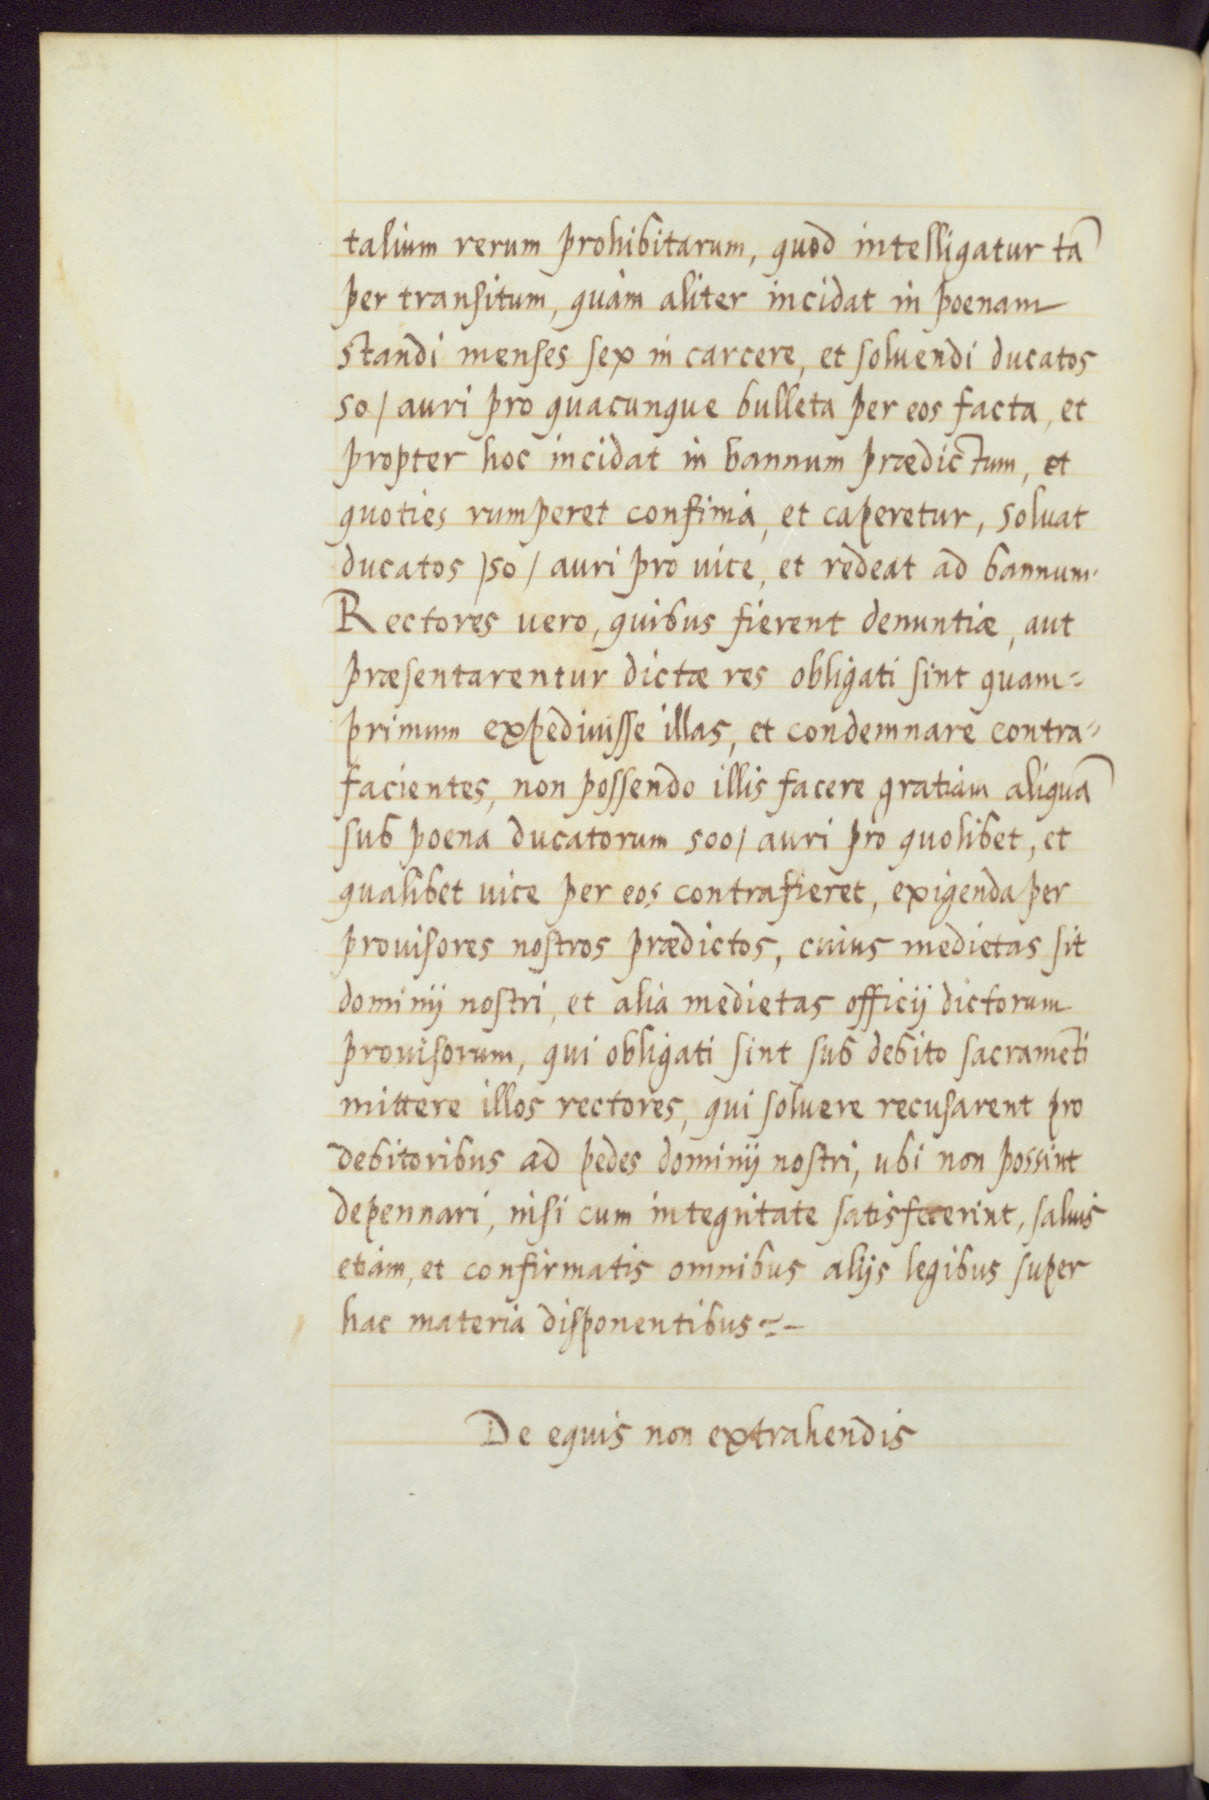 talium rerum prohibitarum, quod intelligatur tā
per transitum, quàm aliter incidat in poenam
standi menses sex in carcere, et soluendi ducatos
50/ auri pro quacunque bulleta per eos facta, et
propter hoc incidat in bannum prædictum, et
quoties rumperet confinia, et caperetur, soluat
ducatos /50/ auri pro uice, et redeat ad bannum.
Rectores uero, quibus fierent denuntiæ, aut
præsentarentur dictæ res obligati sint quam=
primum expediuisse illas, et condemnare contra=
facientes, non possendo illis facere gratiam aliquā
sub poena ducatorum 500/ auri pro quolibet, et
qualibet uice per eos contrafieret, exigenda per
prouisores nostros prædictos, cuius medietas sit
dominij nostri, et alia medietas officij dictorum
prouisorum, qui obligati sint sub debito sacramēti
mittere illos rectores, qui soluere recusarent pro
debitoribus ad pedes dominij nostri, ubi non possint
depennari, nisi cum integritate satisfecerint, saluis
etiam, et confirmatis omnibus alijs legibus super
hac materia disponentibus=-
De equis non extrahendis